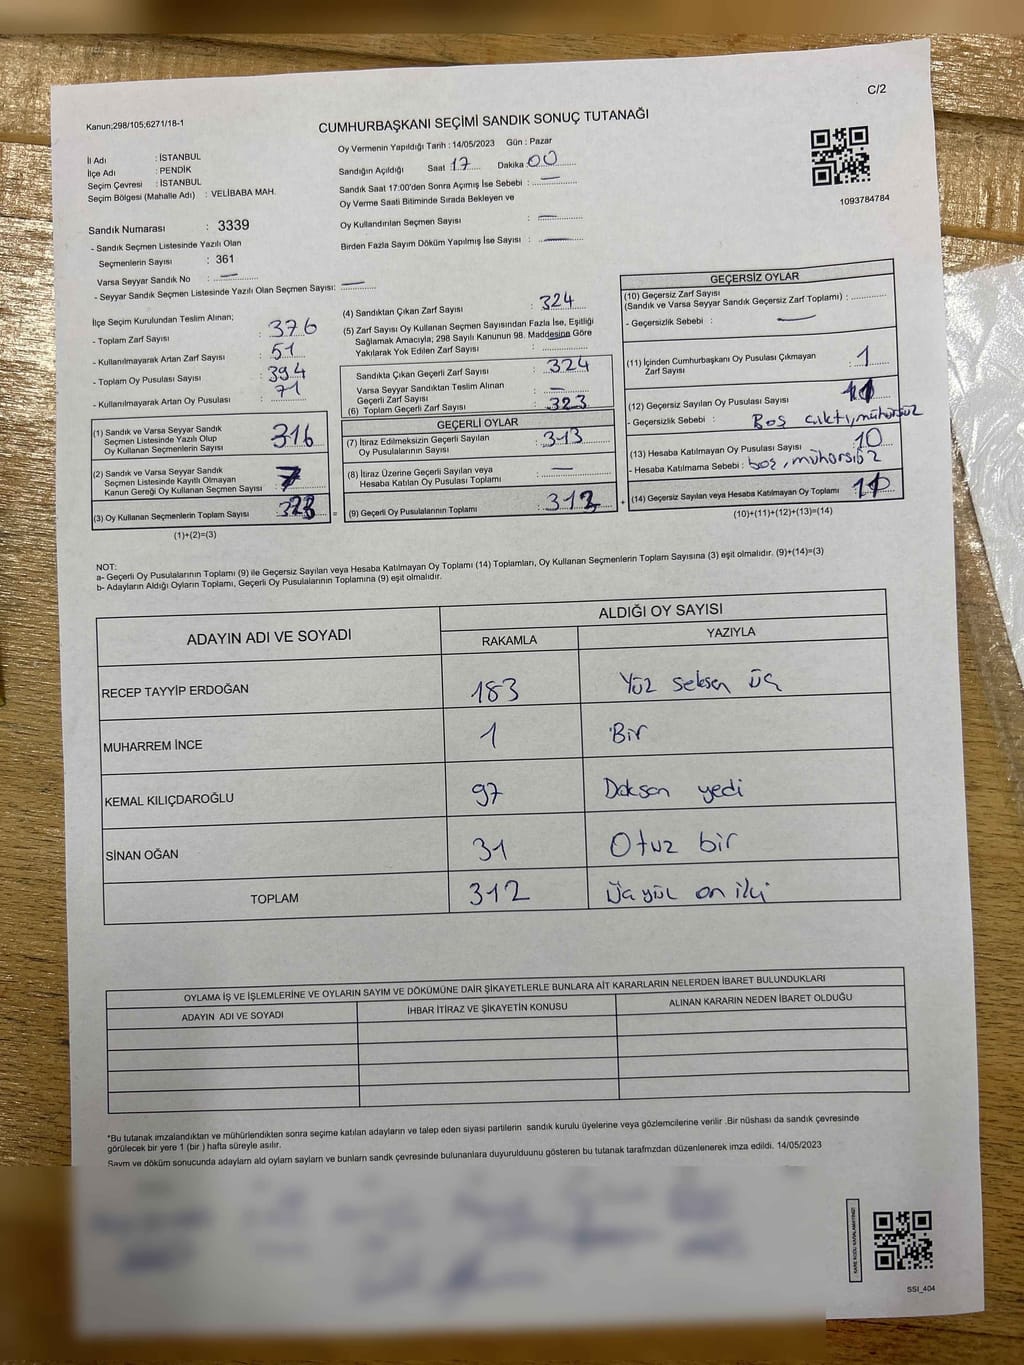 C/2
Kanun;298/105;6271/18-1
CUMHURBAŞKANI SEÇİMİ SANDIK SONUÇ TUTANAĞI
Oy Vermenin Yapıldığı Tarih : 14/05/2023 Gün : Pazar
İl Adı : İSTANBUL
İlçe Adı : PENDİK
Seçim Çevresi : İSTANBUL
Seçim Bölgesi (Mahalle Adı) : VELİBABA MAH.
Sandığın Açıldığı Saat 17 Dakika 00
Sandık Saat 17:00'den Sonra Açımış İse Sebebi : —
Oy Verme Saati Bitiminde Sırada Bekleyen ve
Oy Kullandırılan Seçmen Sayısı : —
Birden Fazla Sayım Döküm Yapılmış İse Sayısı : —
1093784784
Sandık Numarası : 3339
- Sandık Seçmen Listesinde Yazılı Olan
Seçmenlerin Sayısı : 361
Varsa Seyyar Sandık No : —
- Seyyar Sandık Seçmen Listesinde Yazılı Olan Seçmen Sayısı: —
İlçe Seçim Kurulundan Teslim Alınan;
- Toplam Zarf Sayısı : 376
- Kullanılmayarak Artan Zarf Sayısı : 51
- Toplam Oy Pusulası Sayısı : 394
- Kullanılmayarak Artan Oy Pusulası : 71
(1) Sandık ve Varsa Seyyar Sandık
Seçmen Listesinde Yazılı Olup
Oy Kullanan Seçmenlerin Sayısı : 316
(2) Sandık ve Varsa Seyyar Sandık
Seçmen Listesinde Kayıtlı Olmayan
Kanun Gereği Oy Kullanan Seçmen Sayısı : 7
(3) Oy Kullanan Seçmenlerin Toplam Sayısı : 323
(1)+(2)=(3)
(4) Sandıktan Çıkan Zarf Sayısı : 324
(5) Zarf Sayısı Oy Kullanan Seçmen Sayısından Fazla İse, Eşitliği
Sağlamak Amacıyla; 298 Sayılı Kanunun 98. Maddesine Göre
Yakılarak Yok Edilen Zarf Sayısı :
Sandıkta Çıkan Geçerli Zarf Sayısı : 324
Varsa Seyyar Sandıktan Teslim Alınan
Geçerli Zarf Sayısı : —
(6) Toplam Geçerli Zarf Sayısı : 323
GEÇERLİ OYLAR
(7) İtiraz Edilmeksizin Geçerli Sayılan
Oy Pusulasının Sayısı : 313
(8) İtiraz Üzerine Geçerli Sayılan veya
Hesaba Katılan Oy Pusulası Toplamı : —
= (9) Geçerli Oy Pusulalarının Toplamı : 312 +
GEÇERSİZ OYLAR
(10) Geçersiz Zarf Sayısı
(Sandık ve Varsa Seyyar Sandık Geçersiz Zarf Toplamı) :
- Geçersizlik Sebebi : —
(11) İçinden Cumhurbaşkanı Oy Pusulası Çıkmayan
Zarf Sayısı : 1
(12) Geçersiz Sayılan Oy Pusulası Sayısı :
- Geçersizlik Sebebi : Boş çıktı, mühürsüz
(13) Hesaba Katılmayan Oy Pusulası Sayısı : 10
- Hesaba Katılmama Sebebi : boş, mühürsüz
(14) Geçersiz Sayılan veya Hesaba Katılmayan Oy Toplamı : 11
(10)+(11)+(12)+(13)=(14)
NOT:
a- Geçerli Oy Pusulalarının Toplamı (9) ile Geçersiz Sayılan veya Hesaba Katılmayan Oy Toplamı (14) Toplamları, Oy Kullanan Seçmenlerin Toplam Sayısına (3) eşit olmalıdır. (9)+(14)=(3)
b- Adayların Aldığı Oyların Toplamı, Geçerli Oy Pusulalarının Toplamına (9) eşit olmalıdır.
ADAYIN ADI VE SOYADI ALDIĞI OY SAYISI
RAKAMLA YAZIYLA
RECEP TAYYİP ERDOĞAN 183 Yüz seksen üç
MUHARREM İNCE 1 Bir
KEMAL KILIÇDAROĞLU 97 Doksan yedi
SİNAN OĞAN 31 Otuz bir
TOPLAM 312 Üç yüz on iki
OYLAMA İŞ VE İŞLEMLERİNE VE OYLARIN SAYIM VE DÖKÜMÜNE DAİR ŞİKAYETLERLE BUNLARA AİT KARARLARIN NELERDEN İBARET BULUNDUKLARI
ADAYIN ADI VE SOYADI İHBAR İTİRAZ VE ŞİKAYETİN KONUSU ALINAN KARARIN NEDEN İBARET OLDUĞU
*Bu tutanak imzalandıktan ve mühürlendikten sonra seçime katılan adayların ve talep eden siyasi partilerin sandık kurulu üyelerine veya gözlemcilerine verilir .Bir nüshası da sandık çevresinde
görülecek bir yere 1 (bir ) hafta süreyle asılır.
Sayım ve döküm sonucunda adayların ald oyların sayları ve bunların sandk çevresinde bulunanlara duyurulduunu gösteren bu tutanak tarafmzdan düzenlenerek imza edildi. 14/05/2023
SSI_404